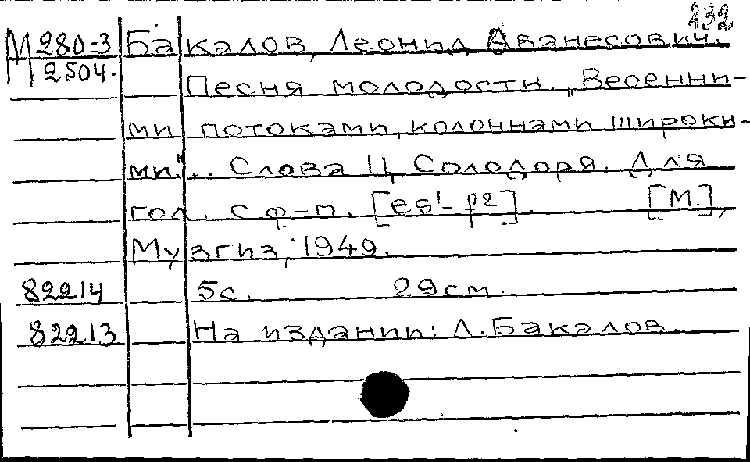 232
М 280-3 Бакалов, Леонид Аванесович.
2504. Песня молодости. „Весенни-
ми потоками, колоннами широки-
ми“... Слова Ц. Солодаря. Для
гол. с ф-п. [es¹- f²]. [М.],
Музгиз, 1949.
82214 5с. 29см.
82213 На издании: Л. Бакалов